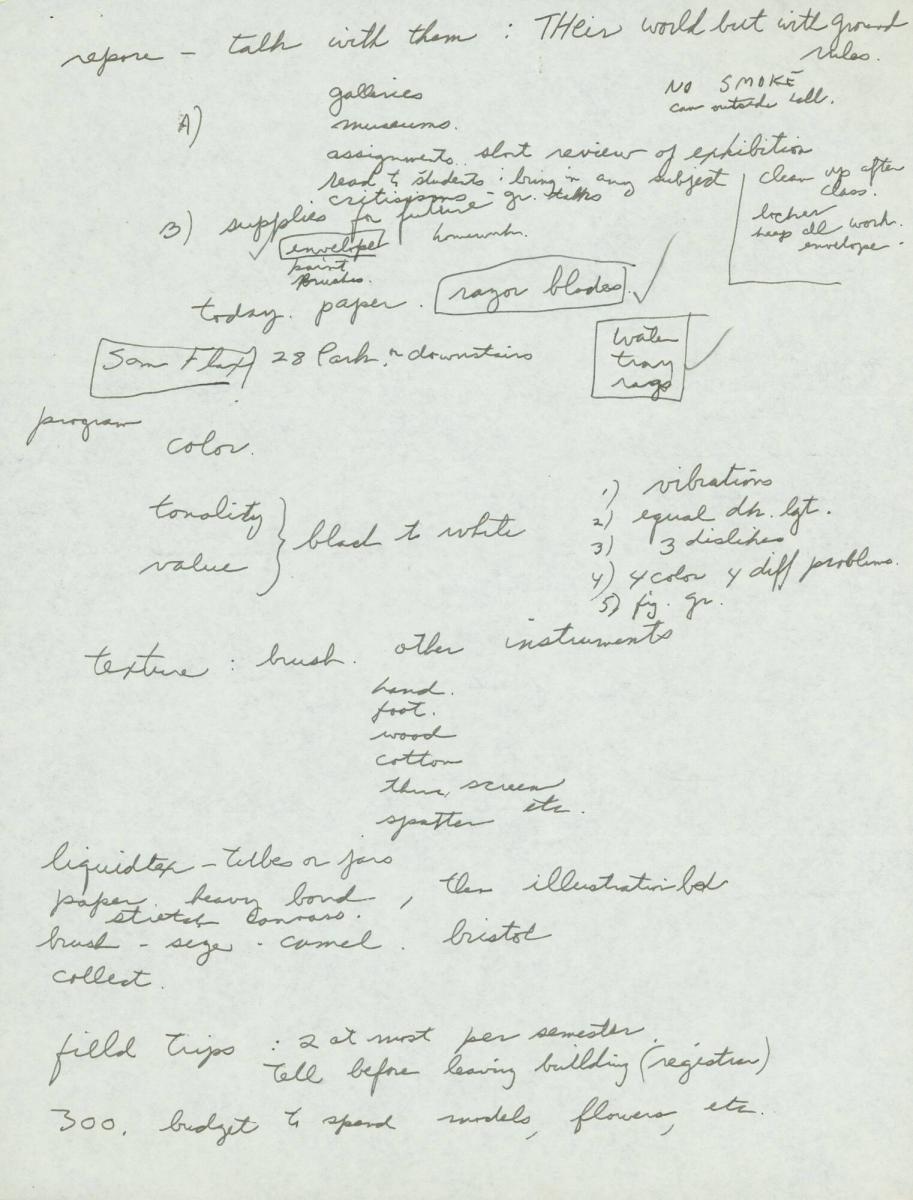 repore - talk with them : THeir world but with ground rules.
NO SMOKE
can outside hall.
A)
galleries
museums.
assignments. short review of exhibition
read to students : bring in any subject
criticisms - gr. talks
clean up after class.
locker
keep all work.
envelope.
B) supplies for future
envelope
paint
Brushes.
homework.
today. paper. razor blades.
Sam Flax 28 Park, downstairs
water
tray
rags
program
color.
tonality
value
black to white
1) vibrations
2) equal dk. lgt.
3) 3 dislikes
4) 4 color 4 diff problems.
5) fig. gr.
texture : brush. other instruments
hand.
foot.
wood
cotton
screen
spatter etc.
liquidtex - tubes or jars
paper. heavy bond, then illustration bd
stretch canvas.
brush - size - camel. bristol
collect.
field trips : 2 at most per semester.
tell before leaving building (registrar)
300. budget to spend models, flowers, etc.